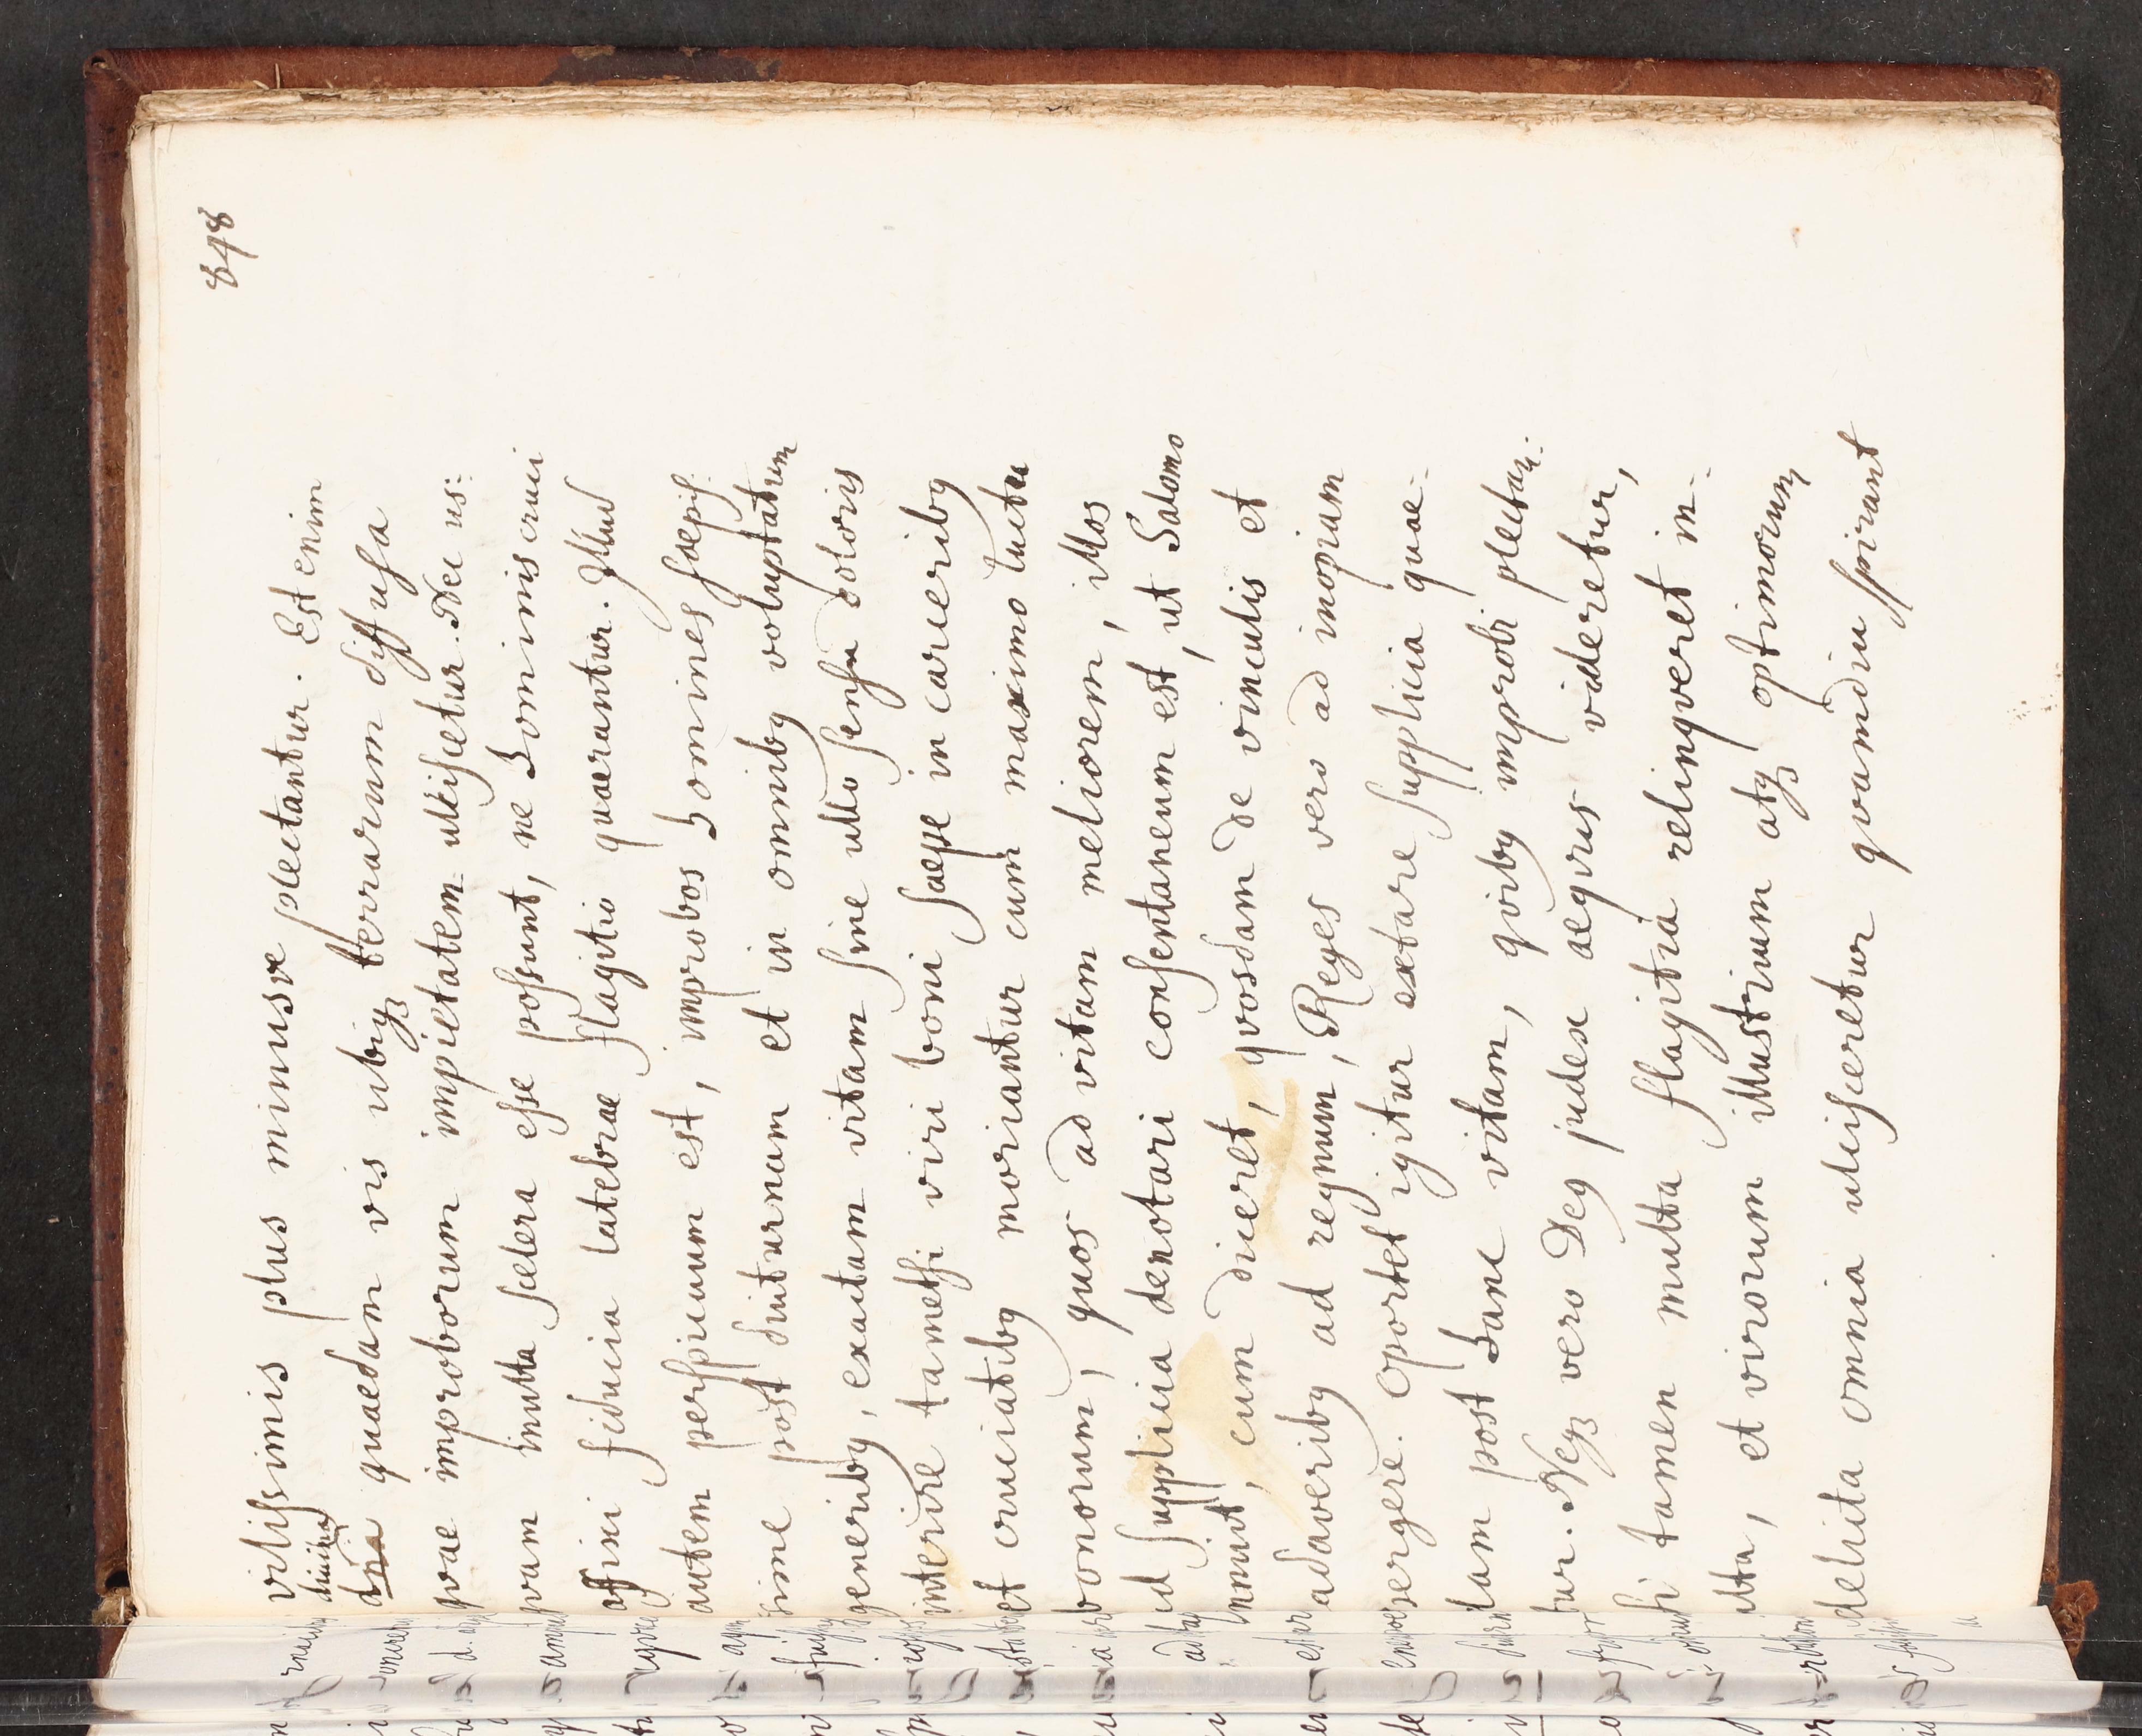 848
vilissimis plus minusve plectantur. Est enim
divina
dna quaedam vis ubiqz terrarum diffusa
qvae improborum impietatem ulciscetur. Nec us:
qvam multa scelera esse possunt, ne hominis cruci
affixi fiducia latebrae flagitio quaerantur. Illud
autem perspicuum est, improbos homines saepis:
sime post diuturnam et in omnibg voluptatum
generibg, exactam vitam sine ullo sensu doloris
interire tametsi viri boni saepe in carceribg
et cruciatibg moriantur cum maximo luctu
bonorum, quos ad vitam meliorem, illos
ad supplicia denotari consentaneum est, ut Salomo
innuit, cum diceret, qvosdam de vinculis et
cadaveribg ad regnum, Reges vero ad inopiam
vergere. Oportet igitur extare supplicia quae-
dam post hanc vitam, qvibg improbi plectan:
tur. Neqz vero Deg judex aeqvus videretur,
si tamen multa flagitia relinqveret in-
ulta, et virorum illustrium atqz optimorum
delicta omnia ulcisceretur qvamdiu spirant